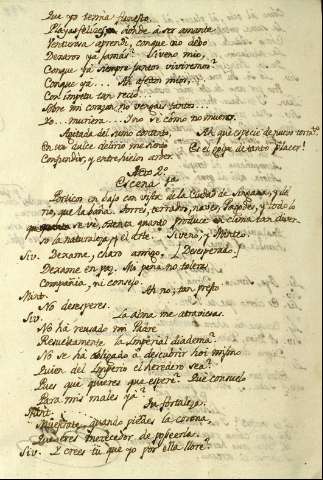 Que yo temia funesto.
Playas felices, donde à ser amante
Venturosa aprendi, conque no debo
Dexaros ya jamas? Siveno mio,
Conque ya siempre juntos viviremos?
Conque ya.... Ah afectos mios,
Con impetu tan recio
Sobre mi corazon no vengais tantos...
Yo... muriera... Yo no sè como no muero.
Agitada del sumo contento, Ah què especie de nuevo torm.to
En un dulce delirio me siento Es el golpe de tanto placer!
Confundir, y entre yelos arder.
Acto 2.º
Escena 1ª
Portico en bajo con vista de la Ciudad de Singana, y del
rio, que la baña. Torres, terrados, naves, Pagodes, y todo lo
que se vè, ostenta quanto produce en clima tan diver-
so la naturaleza, y el Arte. Siveno, y Minteo.
Siv. Dexame, charo amigo, [Desesperado.]
Dexame en paz. Mi pena no tolera
Compañia, ni consejo.
Mint. Ah no; tan presto
No desesperes.
Siv. La alma me atraviesas.
No hà reusado mi Padre
Resueltamente la Imperial diadema?
No se hà obligado à descubrir hoi mismo
Quien del Imperio el heredero sea?
Pues què quieres que espere? Què consuelo
Para mis males ya?
Mint. Tu fortaleza.
Muestrate, quando pierdes la corona,
Que eres merecedor de poseerla.
Siv. Y crees tù que yo por ella llore?